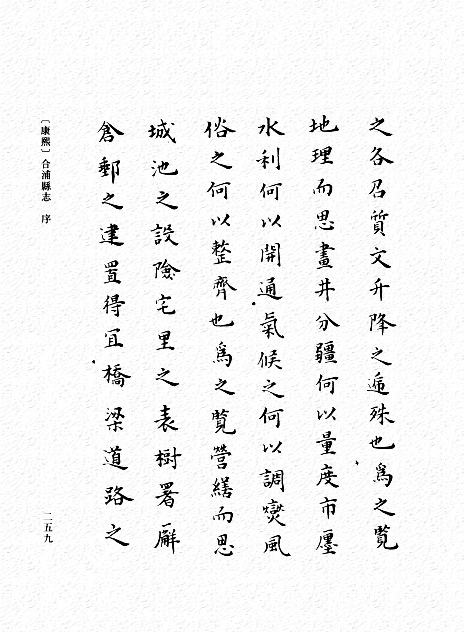 之各召質文升降之遞殊也爲之覽
地理而思畫井分疆何以量度市廛
水利何以開通氣候之何以調爕風
俗之何以整齊也爲之覽營繕而思
城池之設險宅里之表樹署廨
倉郵之建置得冝橋梁道路之
〔康熙〕合浦縣志 序
二五九